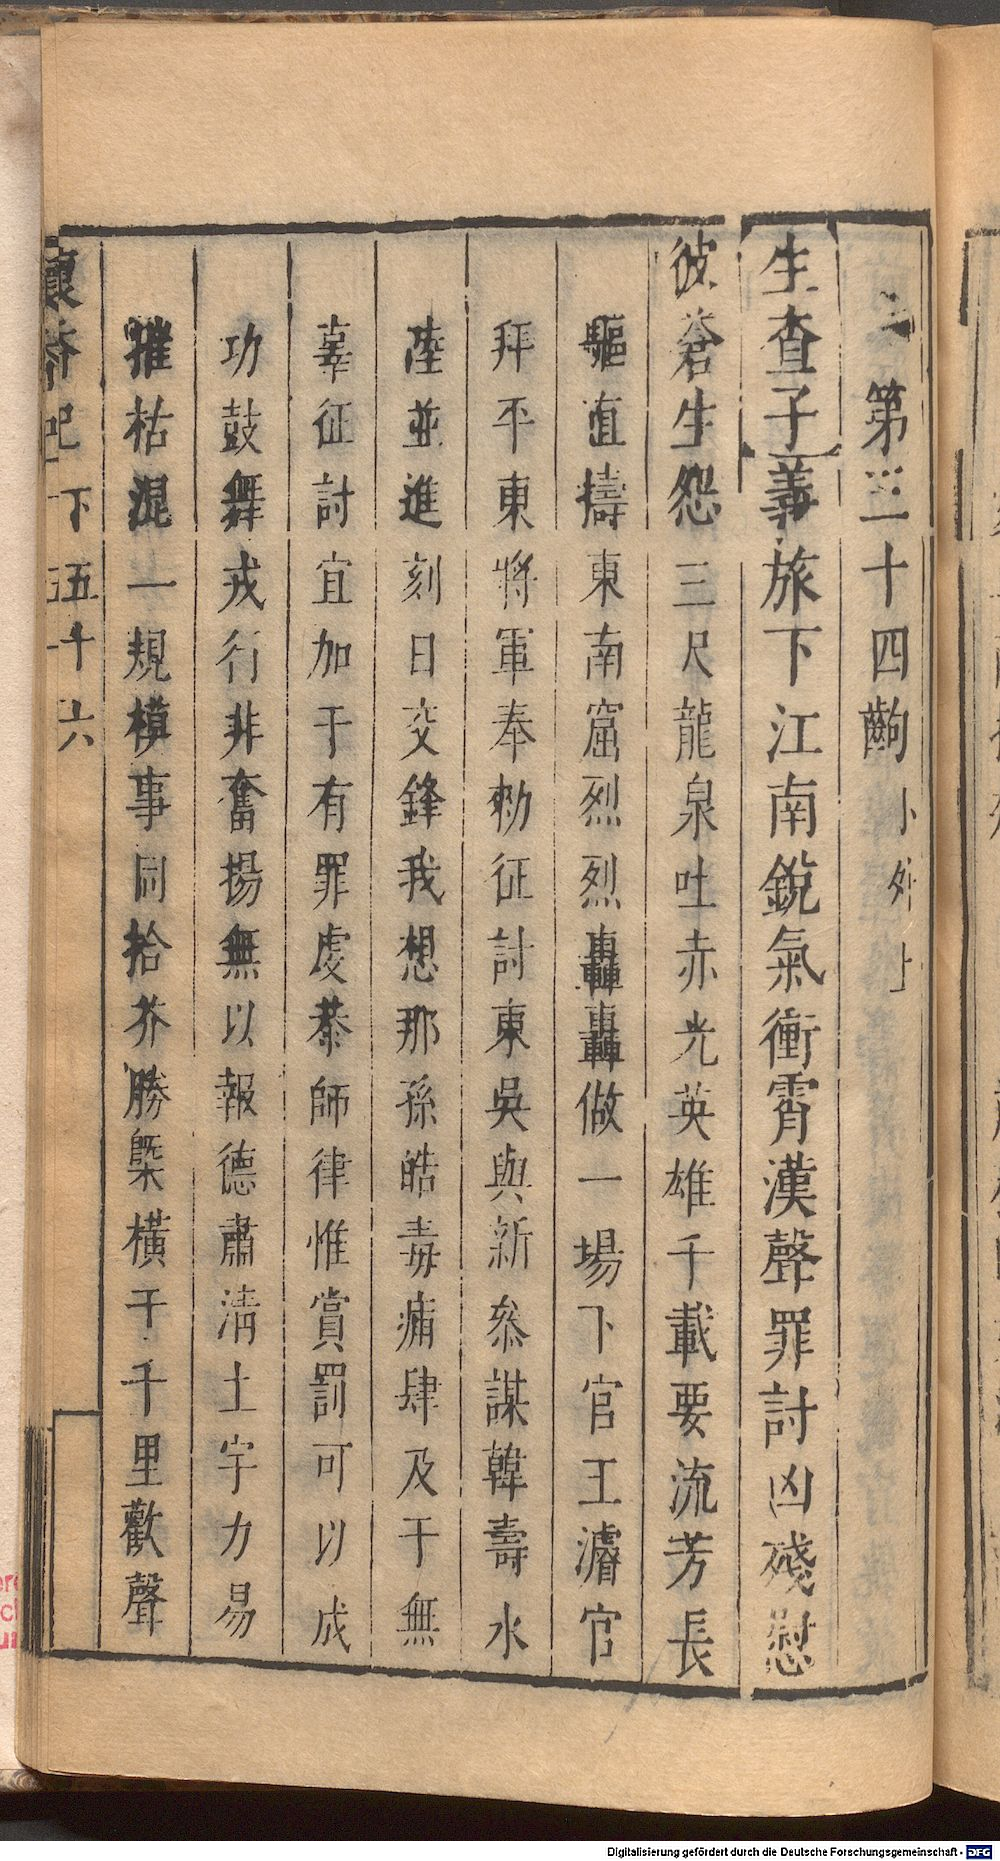 第三十四齣 小外上
生查子義旅下江南銳氣衝霄漢聲罪討凶殘慰
彼蒼生怨三尺龍泉吐赤光英雄千載要流芳長
驅直擣東南窟烈烈轟轟做一場下官王濬官
拜平東將軍奉勑征討東吳與新叅謀韓壽水
陸並進刻日交鋒我想那孫皓毒痡肆及于無
辜征討宜加于有罪虔恭師律惟賞罰可以成
功鼓舞戎行非奮揚無以報德肅淸土宇力易
摧枯混一規模事同拾芥勝槩橫干千里歡聲
懷香記 下 五十六
Digitalisierung gefördert durch die Deutsche Forschungsgemeinschaft - DFG